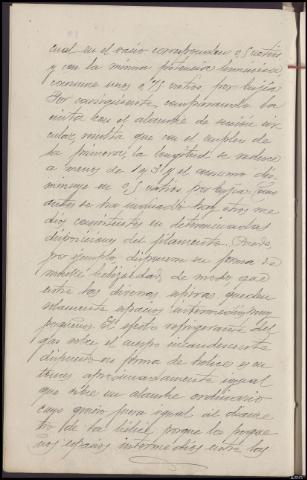 cual en el vacio corresponden 25 vatios
y con la misma potencia luminica
consume unos 0'75 vatios por bujia
Por consiguiente, comparando la
cinta con el alambre de seccion cir
cular, resulta que con el empleo de
la primera, la longitud se reduce
a menos de 1/3 y el consumo dis
minuye en 25 vatios por bujia. Como
antes se ha indicado hay otros me
dios consistentes en determinadas
disposiciones del filamento. Puede,
por ejemplo, disponerse en forma de
muelle helizoidal, de modo que
entre las diversas espiras queden
solamente espacios intermedios muy
pequeños. El efecto refrigerante del
gas sobre el cuerpo incandescente
dispuesto en forma de helice es en
tonces aproximadamente igual
que sobre un alambre ordinario
cuyo grueso fuera igual al diame
tro de la helice, porque los peque
ños espacios intermedios entre las